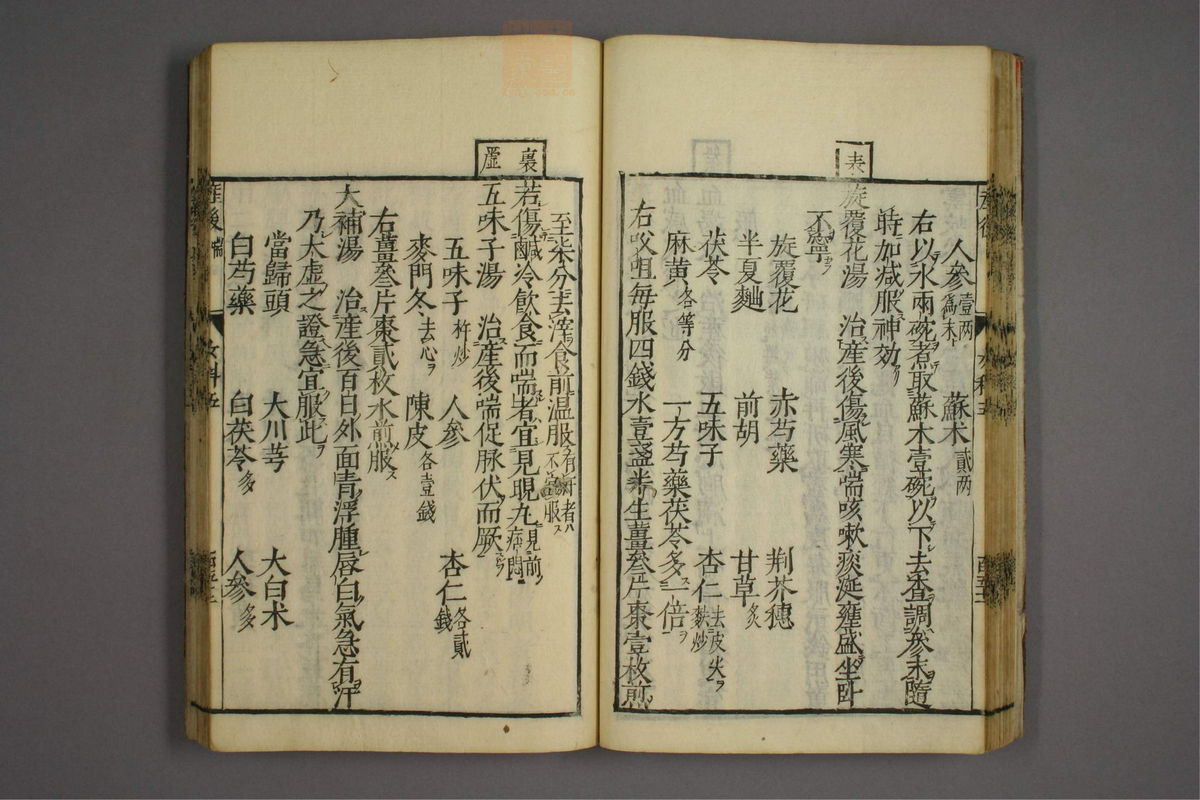 人參壹兩為末 蘇木貳兩
右以水兩碗煮取蘇木壹碗以下去查調參末隨
時加減服神効
表
旋覆花湯 治產後傷風寒喘咳嗽痰涎壅盛坐卧
不寧
旋覆花 赤芍藥 荆芥穗
半夏麯 前胡 甘草炙
茯苓 五味子 杏仁去皮尖麩炒
麻黃各等分 一方芍藥茯苓多一倍
右㕮咀每服四錢水壹盞半生薑叄片棗壹枚煎
至柒分去滓食前温服有汗者不宜服
裏 虛
若傷鹹冷飲食而喘者宜見晛丸見前痞悶
五味子湯 治產後喘促脉伏而厥
五味子杵炒 人參 杏仁各貳錢
麥門冬去心 陳皮各壹錢
右薑叄片棗貳枚水煎服
大補湯 治產後百日外面青浮腫唇白氣急有汗
乃大虛之證急宜服此
當歸頭 大川芎 大白术
白芍藥 白茯苓多 人參多
產後喘 女科五